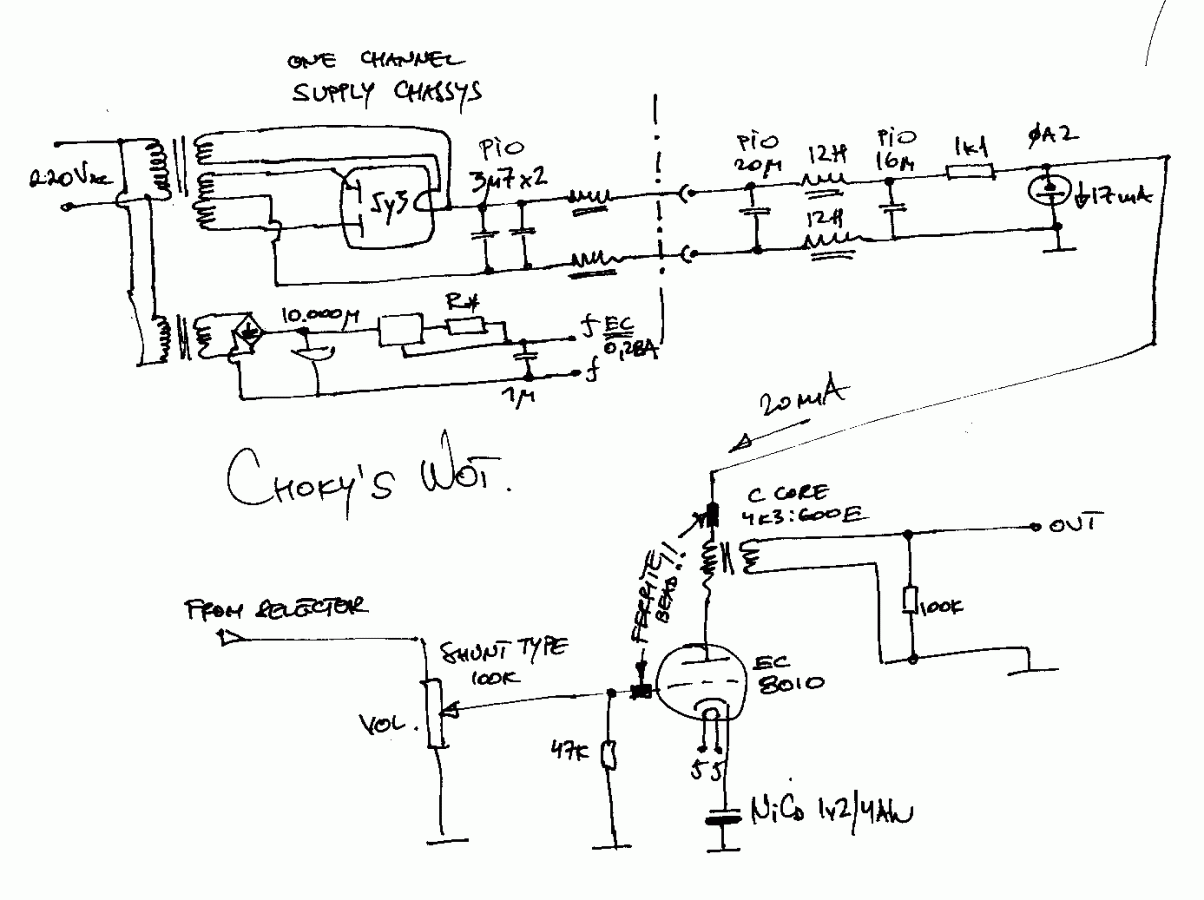 ONE CHANNEL
SUPPLY CHASSYS
220Vac
5y3
PiO
3µ7x2
PiO
20µ
12H
12H
PiO
16µ
1k1
ØA2
17mA
10.000µ
R*
1µ
f EC
0,28A
f
CHOKY'S WOT.
20mA
C CORE
4K3:600E
OUT
100K
FERRITE
BEAD!!
FROM SELECTOR
SHUNT TYPE
100K
VOL.
47K
EC
8010
NiCd 1v2/4Ah